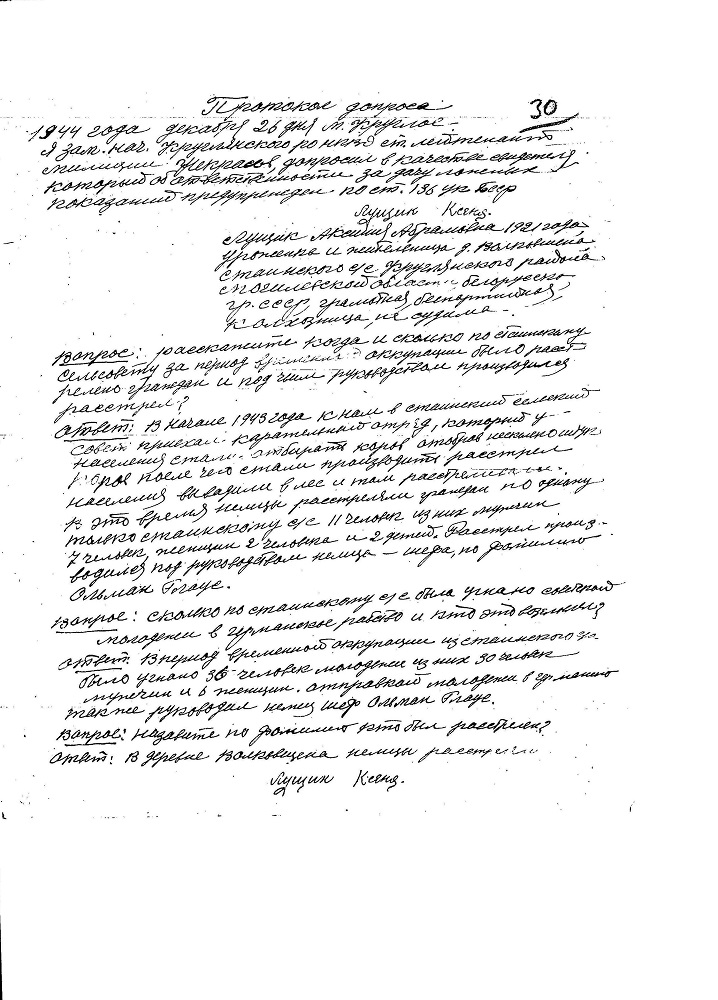 Протокол допроса
30
1944 года декабря 26 дня м. Круглое
Я зам. нач. Круглянского РО НКВД ст. лейтенант
милиции Некрасов, допросил в качестве свидетеля
который об ответственности за дачу ложных
показаний предупрежден по ст. 136 УК БССР
Лущик Ксения.
Лущик Аксиния Абрамовна 1921 года
уроженка и жительница д. Волковщина
Стаинского с/с Круглянского района
Могилевской области белоруско-
гр. СССР, грамотная, беспартийная,
колхозница, не судима.
Вопрос: расскажите когда и сколько по стаинскому
сельсовету за период временной оккупации было расст
релено граждан и под чьим руководством производился
расстрел?
Ответ: В начале 1943 года к нам в стаинский сельский
совет приехал карательный отряд, который у
населения стали отбирать коров отобрав несколько штук
коров после чего стали производить расстрел
населения выводили в лес и там расстреливали.
В это время немцы расстреляли граждан по одному
только стаинскому с/с 11 человек из них мужчин
7 человек, женщин 2 человека и 2 детей. Расстрел произ-
водился под руководством немца – шефа, по фамилию
Ольман Глаус.
Вопрос: сколько по стаинскому с/с было угнано советской
молодежи в германское рабство и кто это
Ответ: В период временной оккупации из стаинского с/с
было угнано 36 человек молодежи из них 30 человек
мужчин и 6 женщин. отправкой молодежи в германию
так же руководил немец шеф Ольман Глаус.
Вопрос: назовите по фамилию кто был расстрелен?
Ответ: В деревне Волковщена немцы расстреляли
Лущик Ксен.